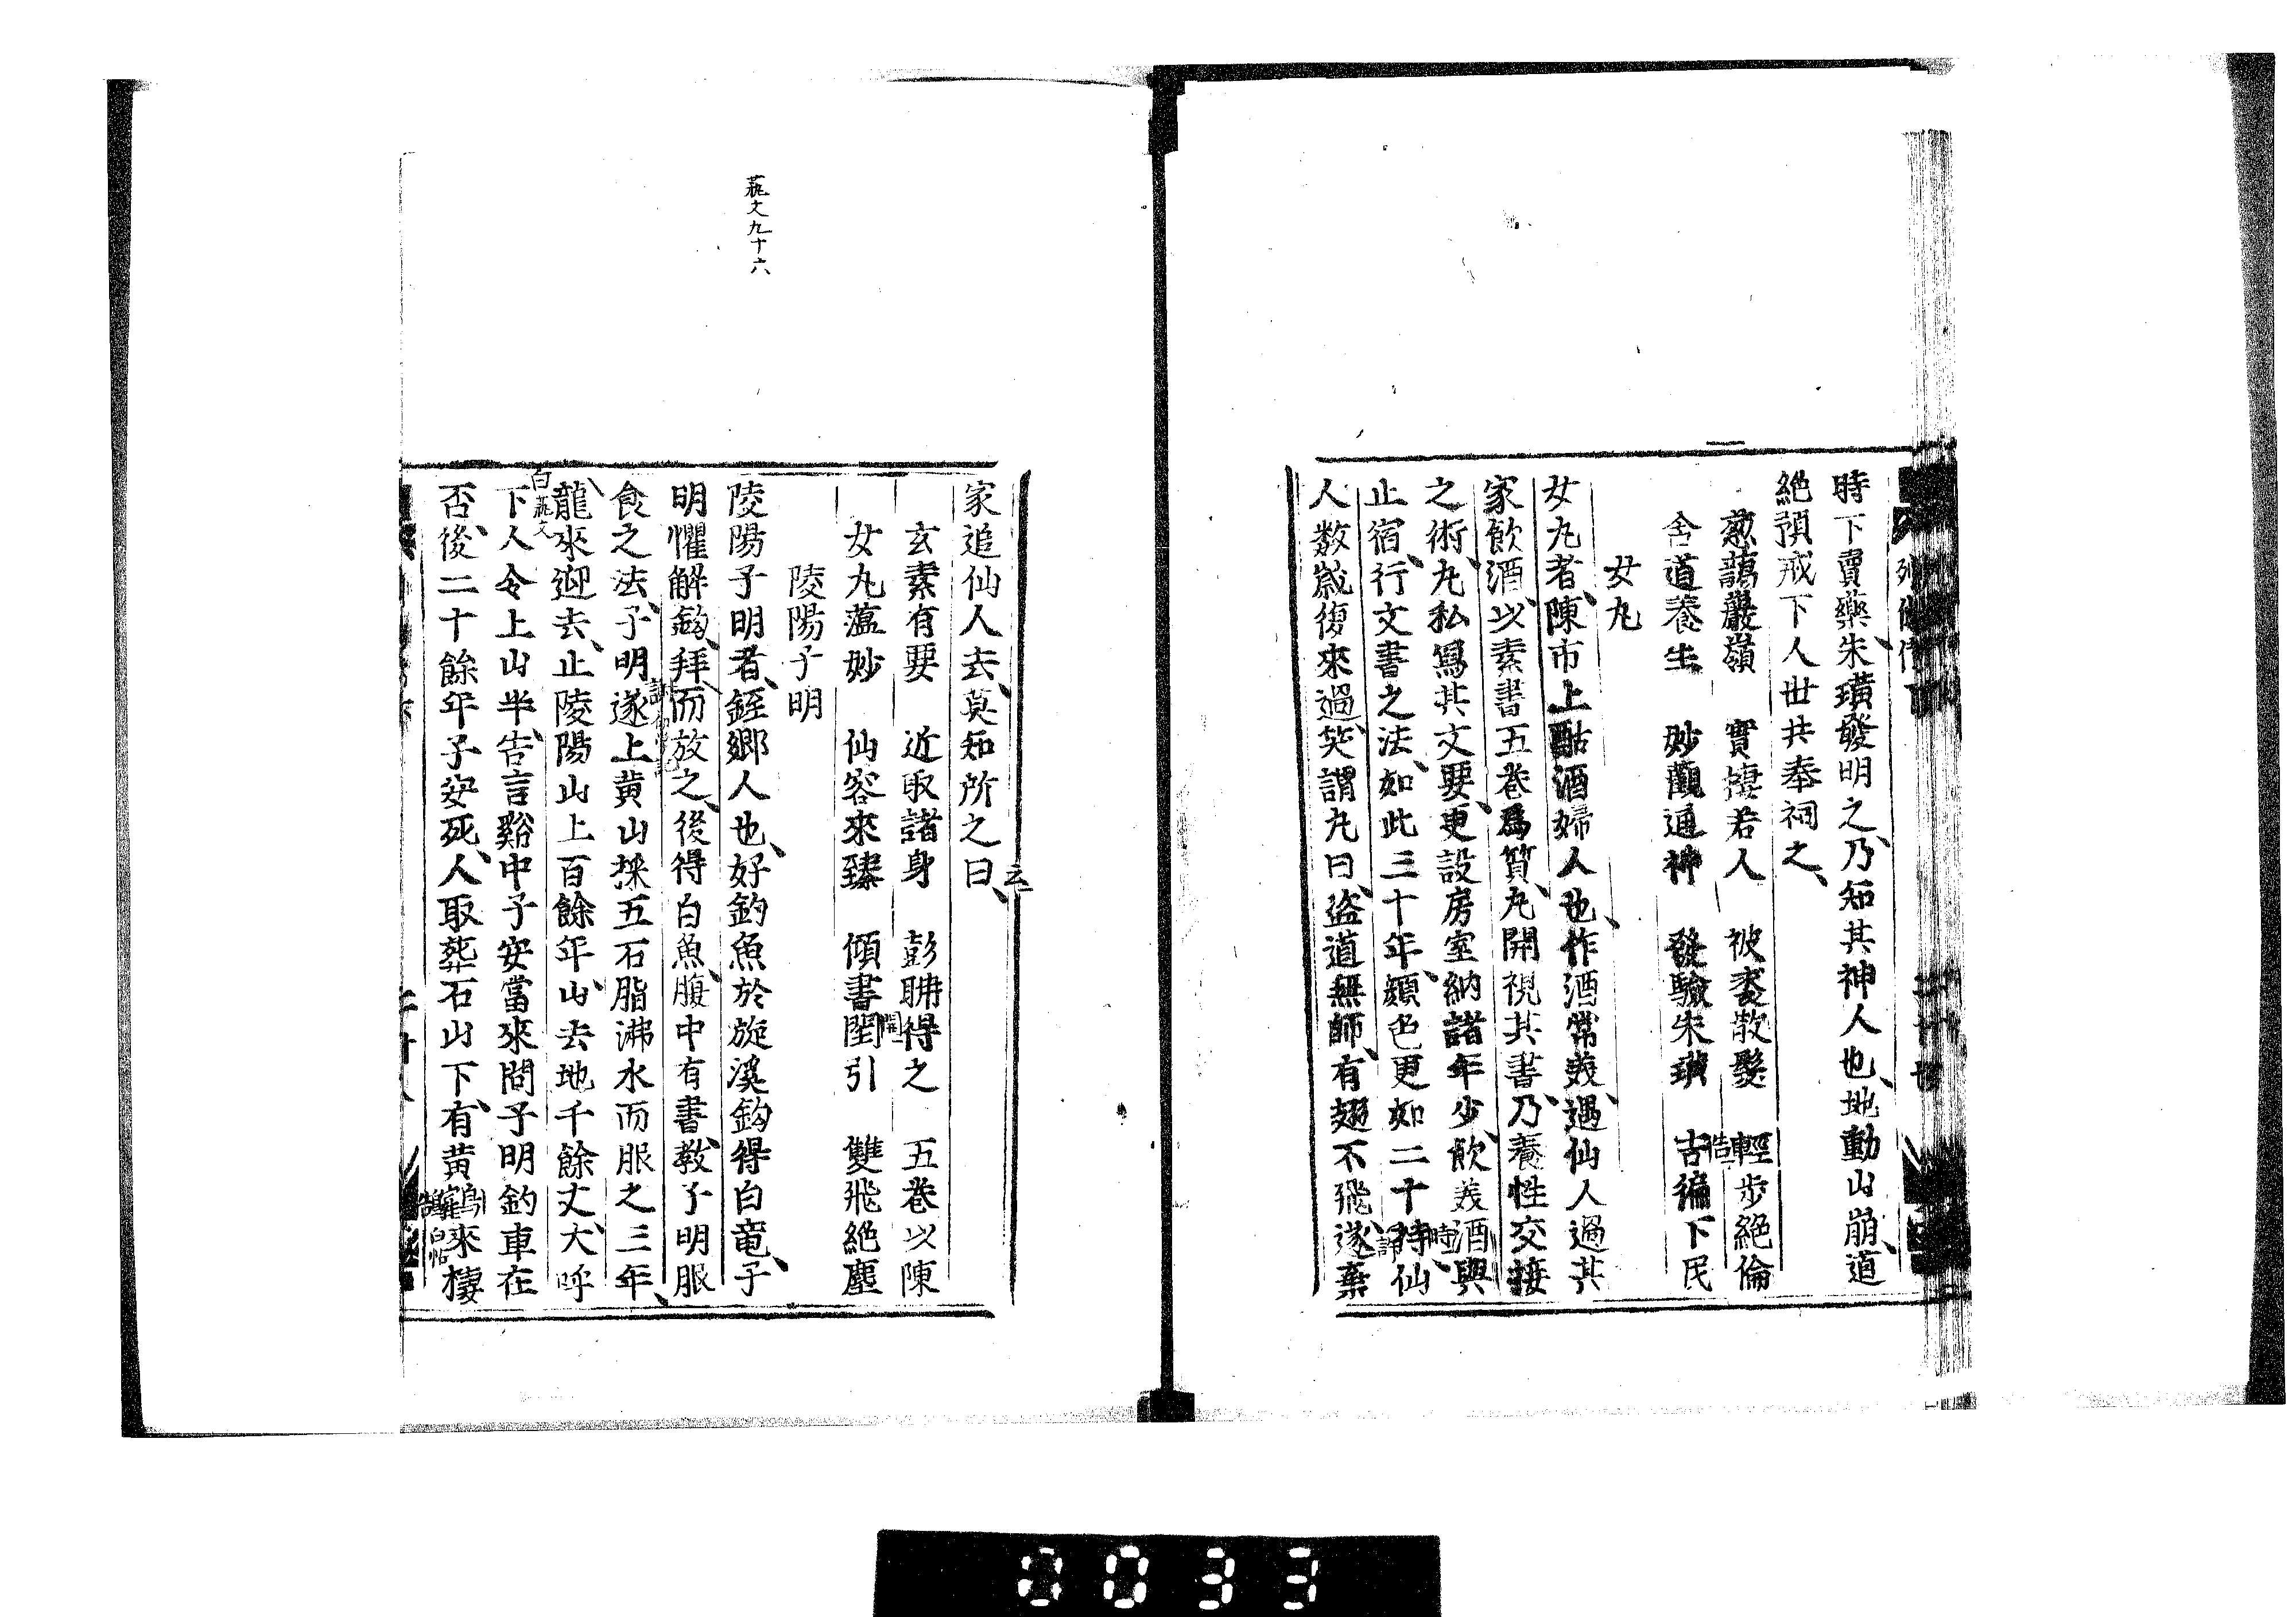 時下賣藥朱璜發明之乃知其神人也地動山崩道
絶預戒下人世共奉祠之
蔥藹巖嶺 實棲若人 被裘散髮 輕步絶倫
舍道養生 妙觀通神 發驗朱璜 古徧下民
告
女丸
女丸者陳市上酤酒婦人也作酒常美遇仙人過其
家飲酒以素書五卷爲質丸開視其書乃養性交接
之術丸私寫其文要更設房室納諸年少飲美酒與
止宿行文書之法如此三十年顔色更如二十時仙
時
人数嵗復來過笑謂丸曰盗道無師有翅不飛遂棄
家追仙人去莫知所之曰
云
玄素有要 近取諸身 彭聃得之 五卷以陳
女丸蕰妙 仙客來臻 傾書開引 雙飛絶塵
陵陽子明
陵陽子明者銍鄉人也好釣魚於旋溪鈎得白竜子
明懼解鈎拜而放之後得白魚腹中有書教子明服
食之法子明遂上黄山採五石脂沸水而服之三年
龍來迎去止陵陽山上百餘年山去地千餘丈大呼
白 藝文
下人令上山半告言谿中子安當來問子明釣車在
否後二十餘年子安死人取葬石山下有黄鶴來棲
白帖
藝文九十六
0033